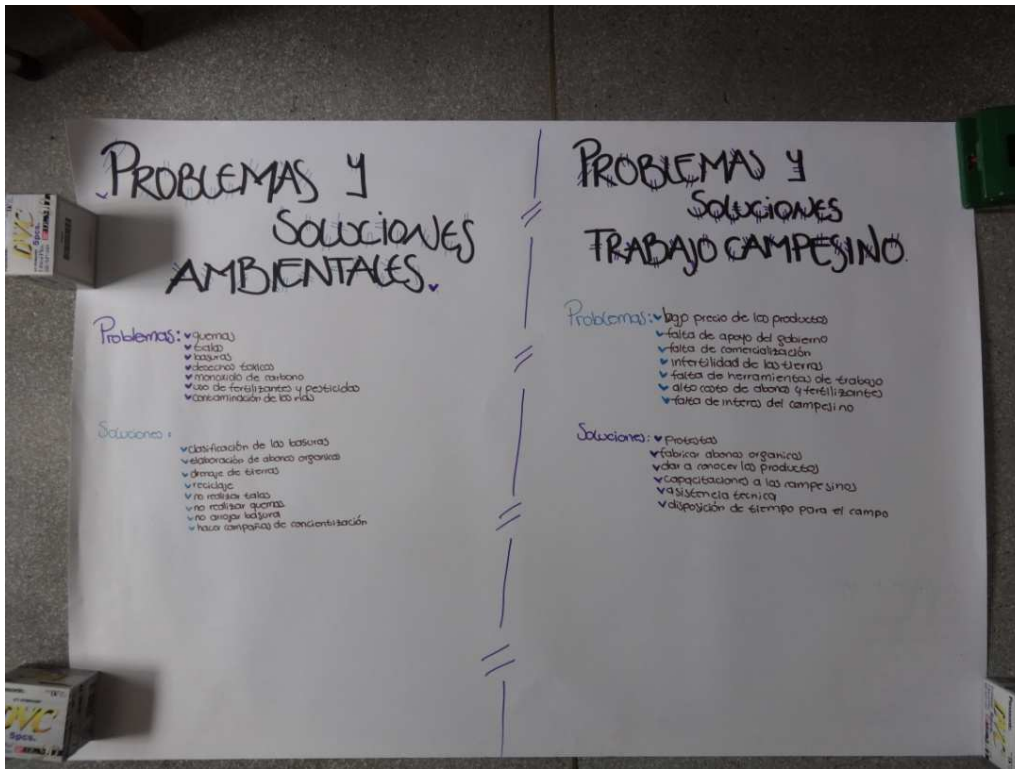 PROBLEMAS Y
SOLUCIONES
AMBIENTALES.
Problemas:
quemas
talas
basuras
desechos toxicos
monoxido de carbono
uso de fertilizantes y pesticidas
contaminación de los rios
Soluciones:
clasificación de las basuras
elaboración de abonos organicos
drenaje de tierras
reciclaje
no realizar talas
no realizar quemas
no arrojar basura
hacer campañas de concientización
PROBLEMAS Y
SOLUCIONES
TRABAJO CAMPESINO.
Problemas: bajo precio de los productos
falta de apoyo del gobierno
falta de comercialización
infertilidad de las tierras
falta de herramientas de trabajo
alto costo de abonos y fertilizantes
falta de interes del campesino
Soluciones: Protestas
fabricar abonos organicos
dar a conocer los productos
capacitaciones a los campesinos
asistencia tecnica
disposición de tiempo para el campo
DVC
5pcs.
DVC
5pcs.
DVC